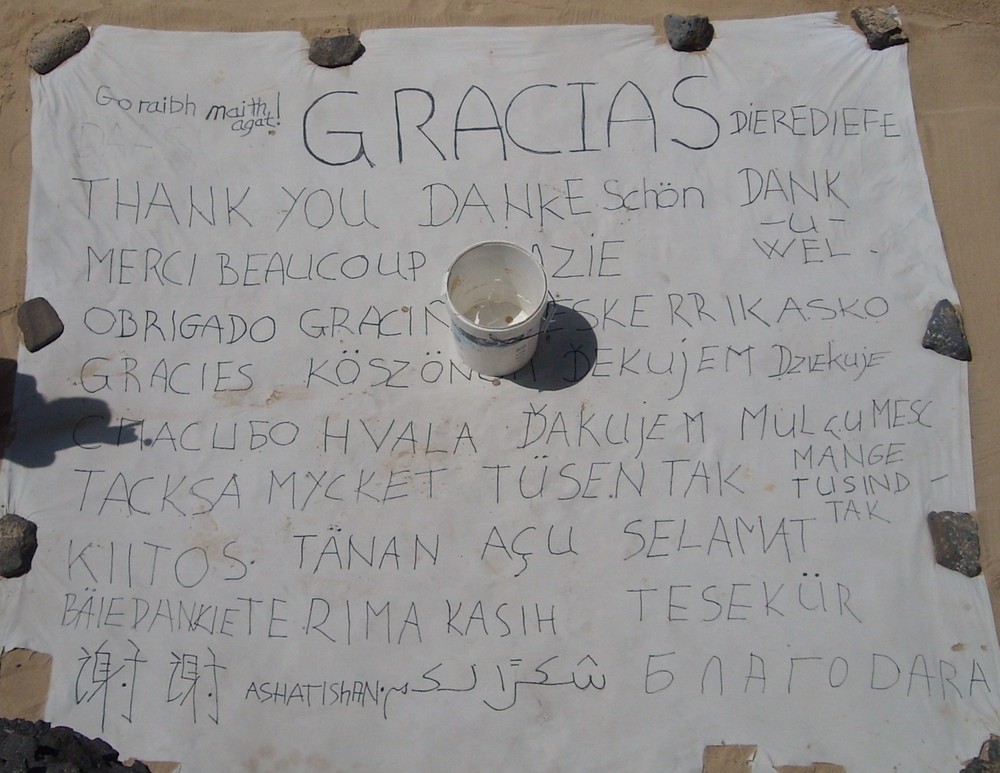 Go raibh maith agat! GRACIAS DIEREDIEFE
THANK YOU DANKE schön DANK
-U-
WEL.
MERCI BEAUCOUP AZIE
OBRIGADO GRACIÑ ESKERRIKASKO
GRACIES KÖSZÖN ĎEKUjEM DZIEKUJE
СПАСИБО HVALA ĎAKUJEM MULÇUMESC
TACKSA MYCKET TÜSEN TAK MANGE
TUSIND-
TAK
KIITOS. TÄNAN AÇU SELAMAT
BÄIEDANKIE TERIMA KASIH TESEKÜR
謝 謝 ASHATISHAN. شكرًا لكم БЛАГОDARA